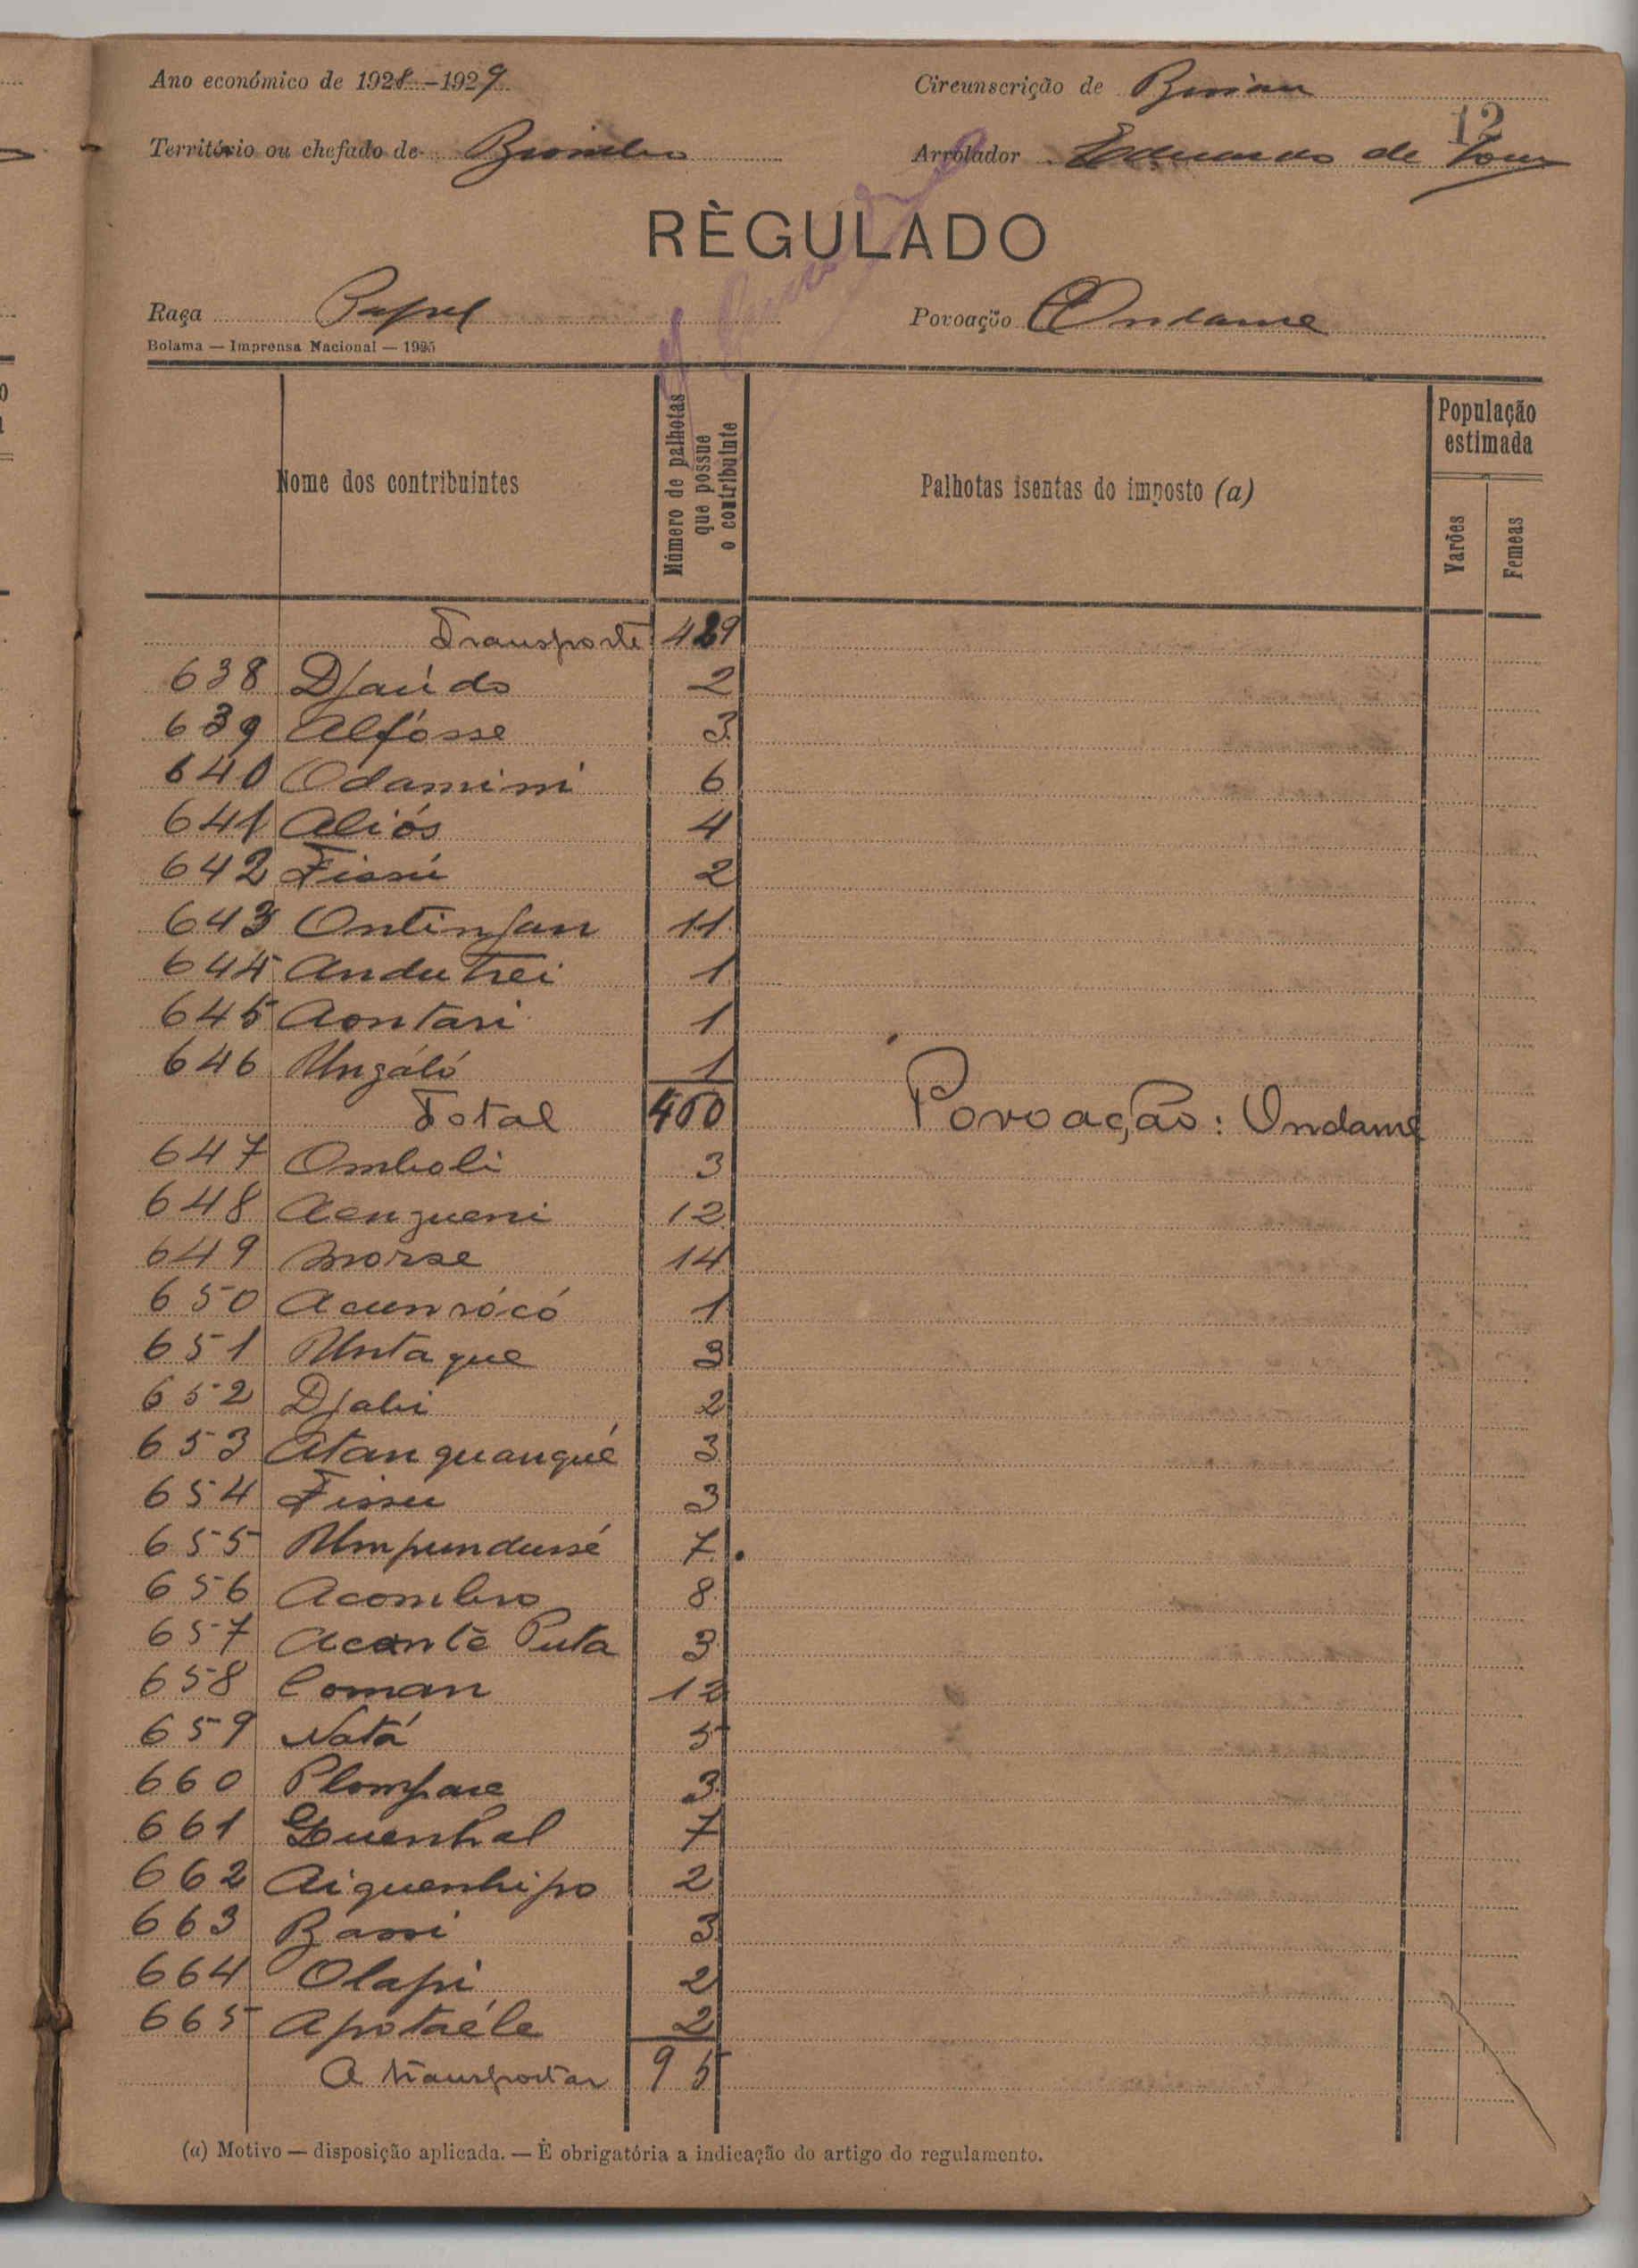 Ano económico de 1928-1929
Circunscrição de Bissau
12
Território ou chefado de Biombo
Arrolador Eduardo de
RÈGULADO
Raça Papel
Povoação Ondame
Bolama — Imprensa Nacional — 1925
Nome dos contribuintes
Número de palhotas que possue o contribuinte
Palhotas isentas do imposto (a)
População estimada
Varões
Femeas
Transporte 429
638 Djaúdo 2
639 Alfósse 3
640 Odamini 6
641 Aliós 4
642 Fissú 2
643 Ontinjan 11
644 Andutrei 1
645 Aontari 1
646 Ungáló 1
Total 460 Povoação: Ondame
647 Omboli 3
648 Aengueni 12
649 Morse 14
650 Acunrócó 1
651 Untaque 3
652 Djabi 2
653 Atanquanqué 3
654 Fissu 3
655 Umpundussé 7
656 Acombro 8
657 Acante Puta 3
658 Coman 12
659 Natá 5
660 Plompae 3
661 Quenhal 7
662 Aiquenhipo 2
663 Bassi 3
664 Olapi 2
665 Apotaéle 2
A transportar 95
(a) Motivo — disposição aplicada. — È obrigatória a indicação do artigo do regulamento.